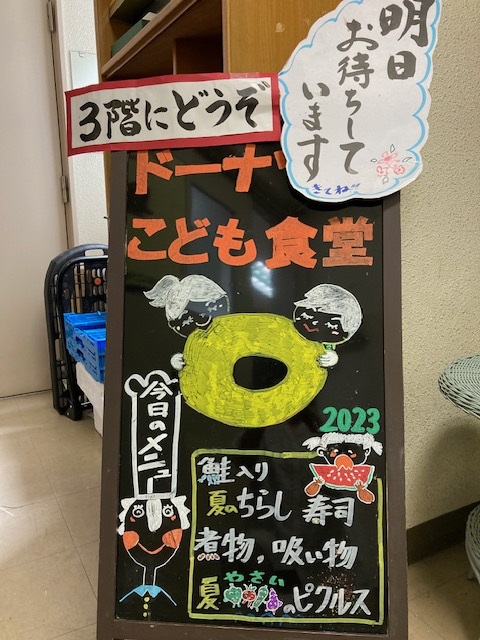 明日
お待ちして
います
きてね
3階にどうぞ
ドーナ
こども食堂
2023
今日のメニュー
鮭入り
夏のちらし寿司
煮物,吸い物
夏やさいのピクルス